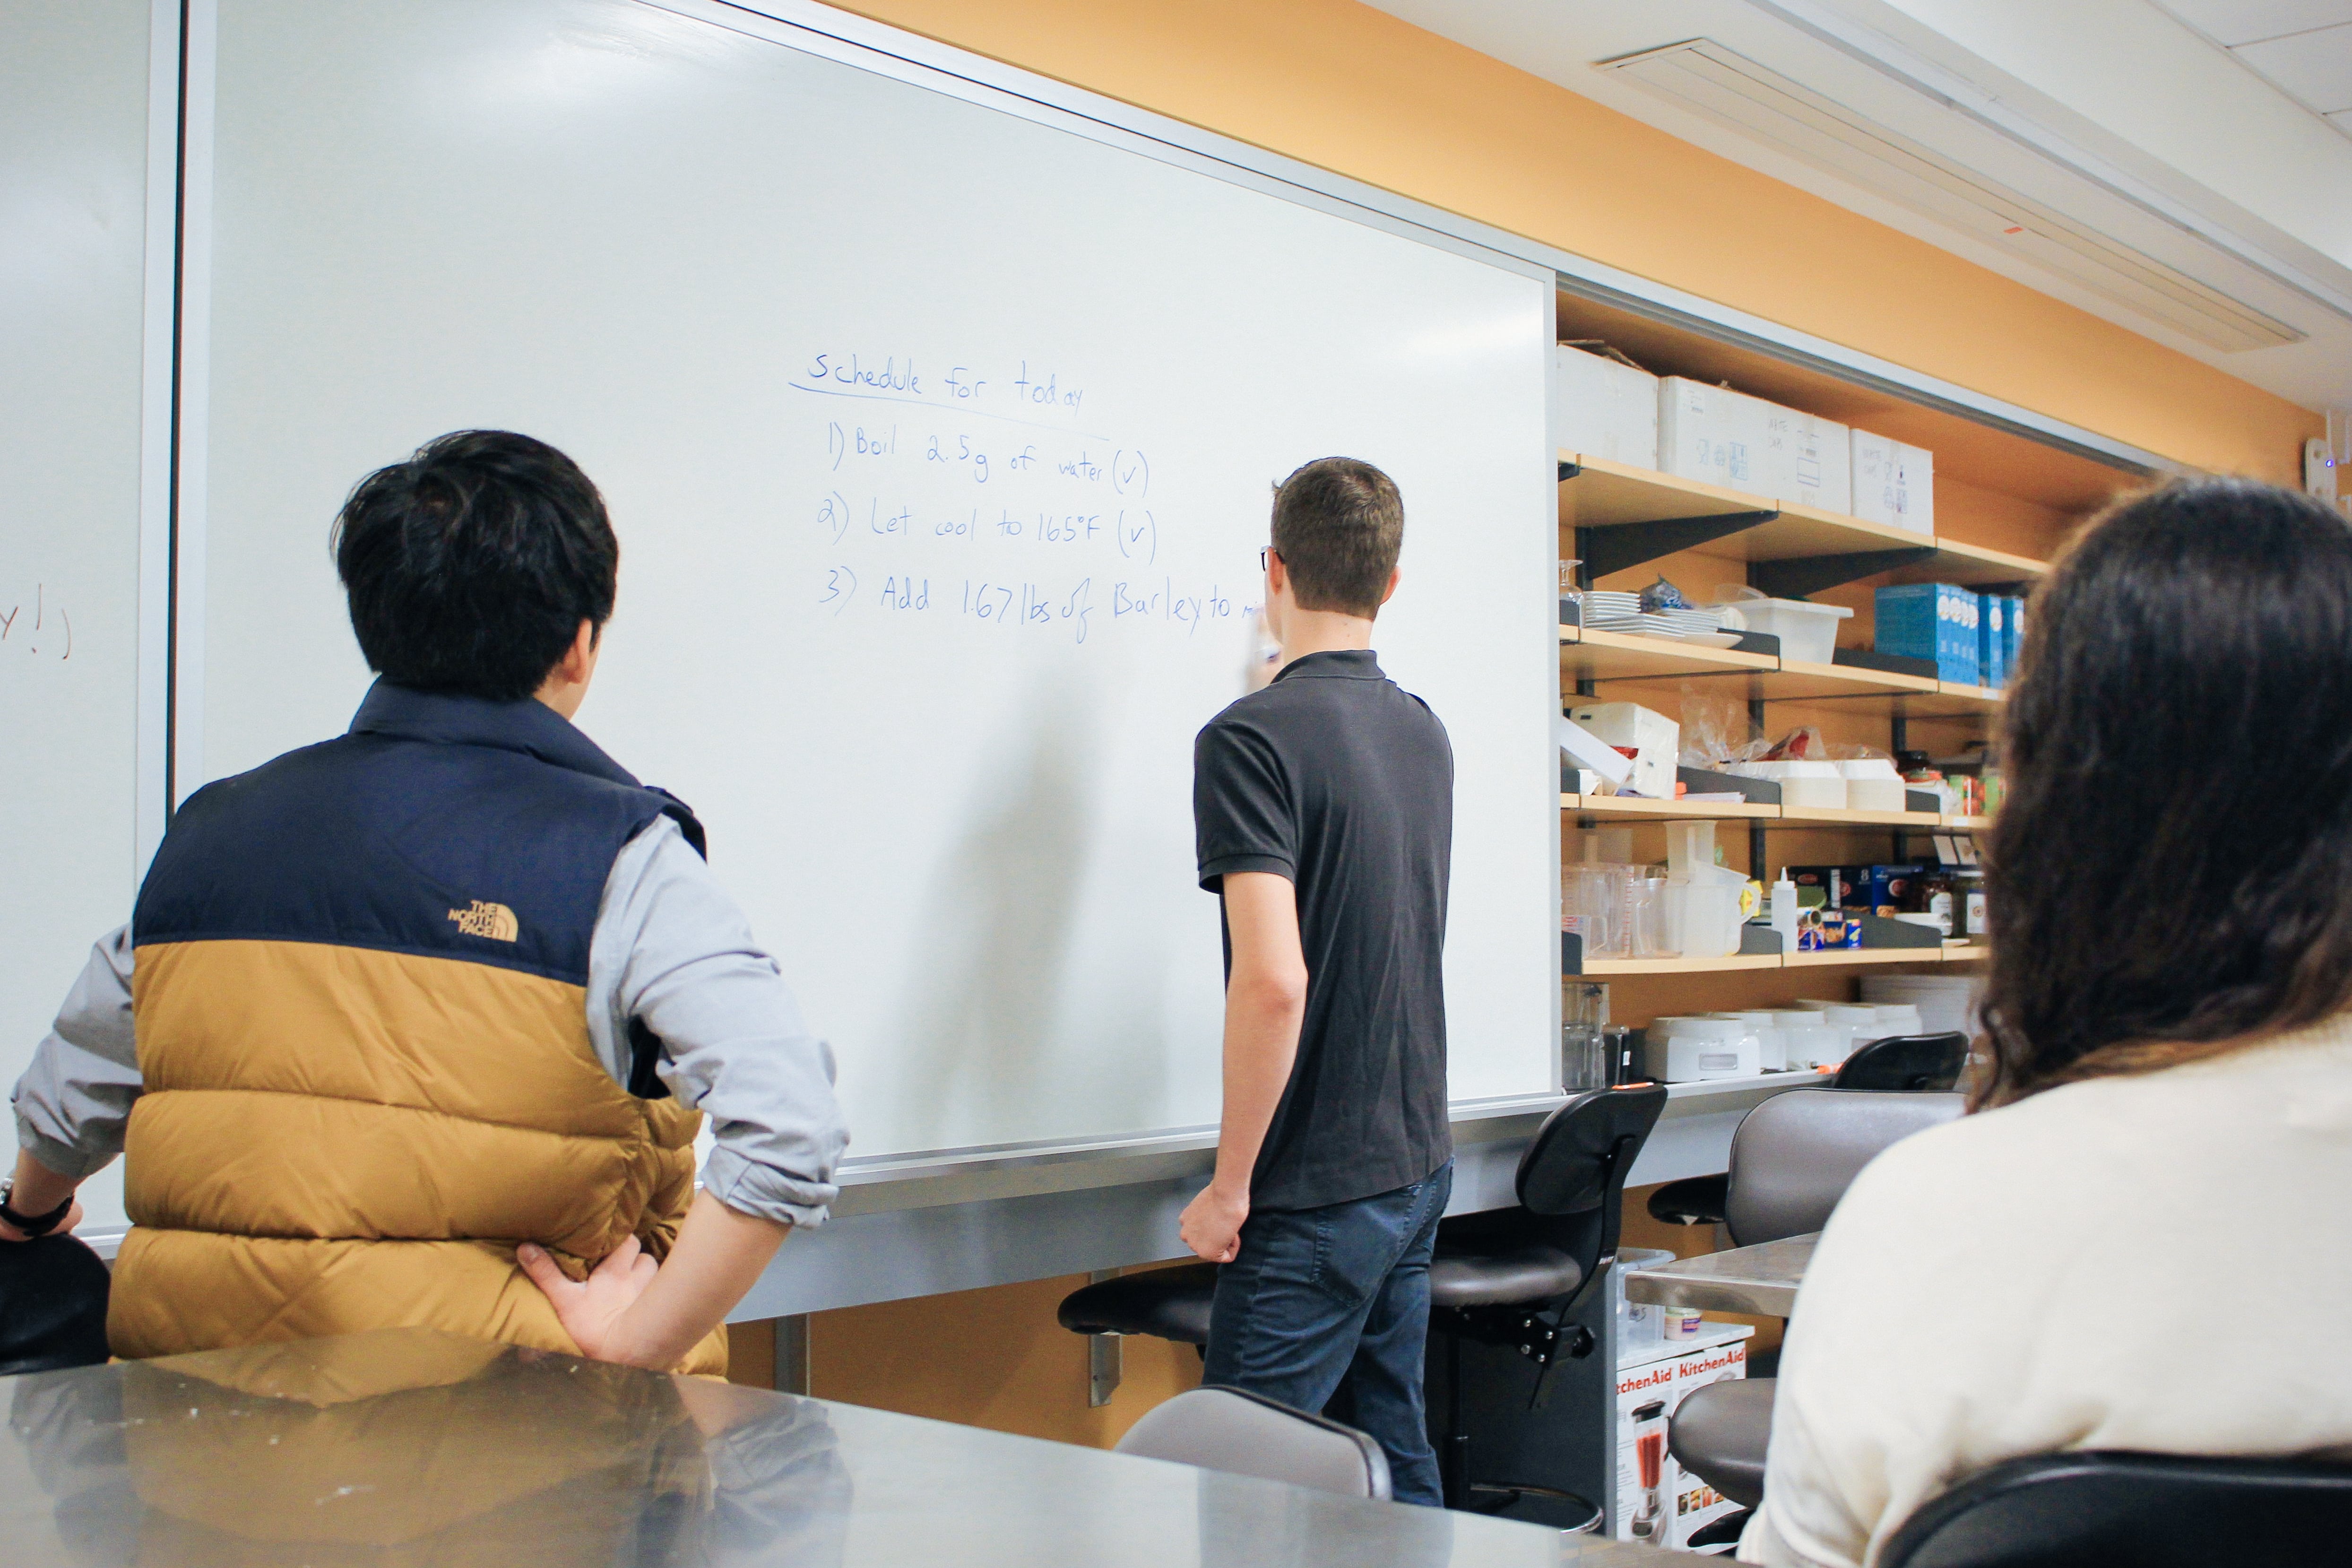 Schedule for today
1) Boil 2.5g of water (v)
2) Let cool to 165°F (v)
3) Add 1.67 lbs of Barley to
y!)
THE
NORTH
FACE
KitchenAid